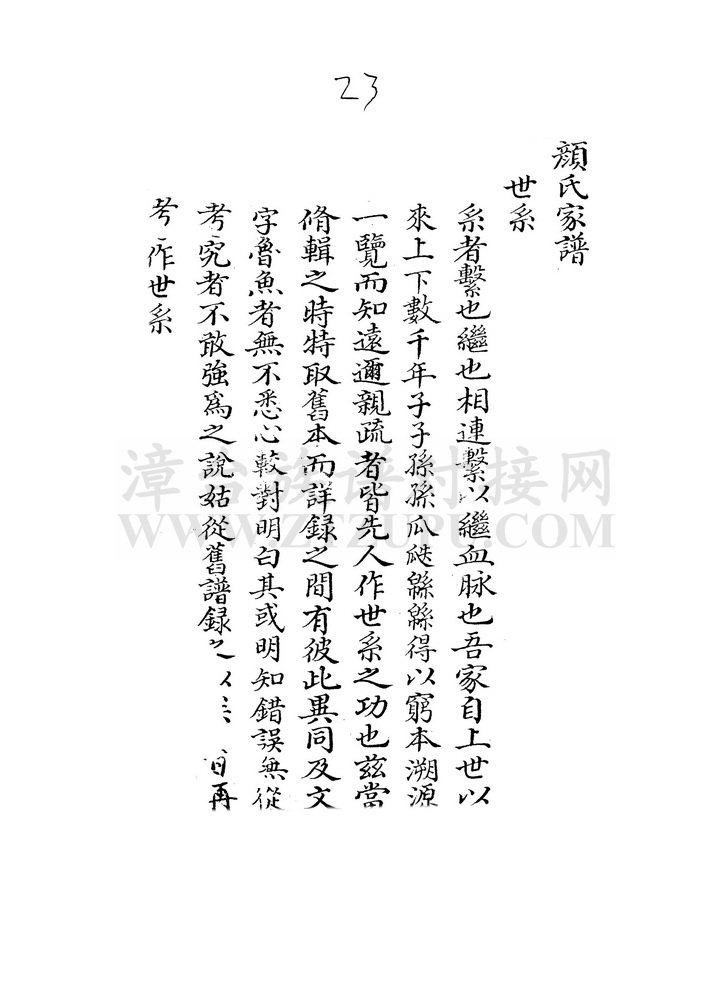 23
顏氏家譜
世系
系者繫也繼也相連繫以繼血脉也吾家自上世以
來上下數千年子子孫孫瓜瓞緜緜得以窮本溯源
一覽而知遠邇親疏者皆先人作世系之功也茲當
脩輯之時特取舊本而詳録之間有彼此異同及文
字魯魚者無不悉心較對明白其或明知錯誤無從
考究者不敢強爲之說姑從舊譜録之以 再
考作世系
漳台族谱对接网
WWW.ZTZUPU.COM